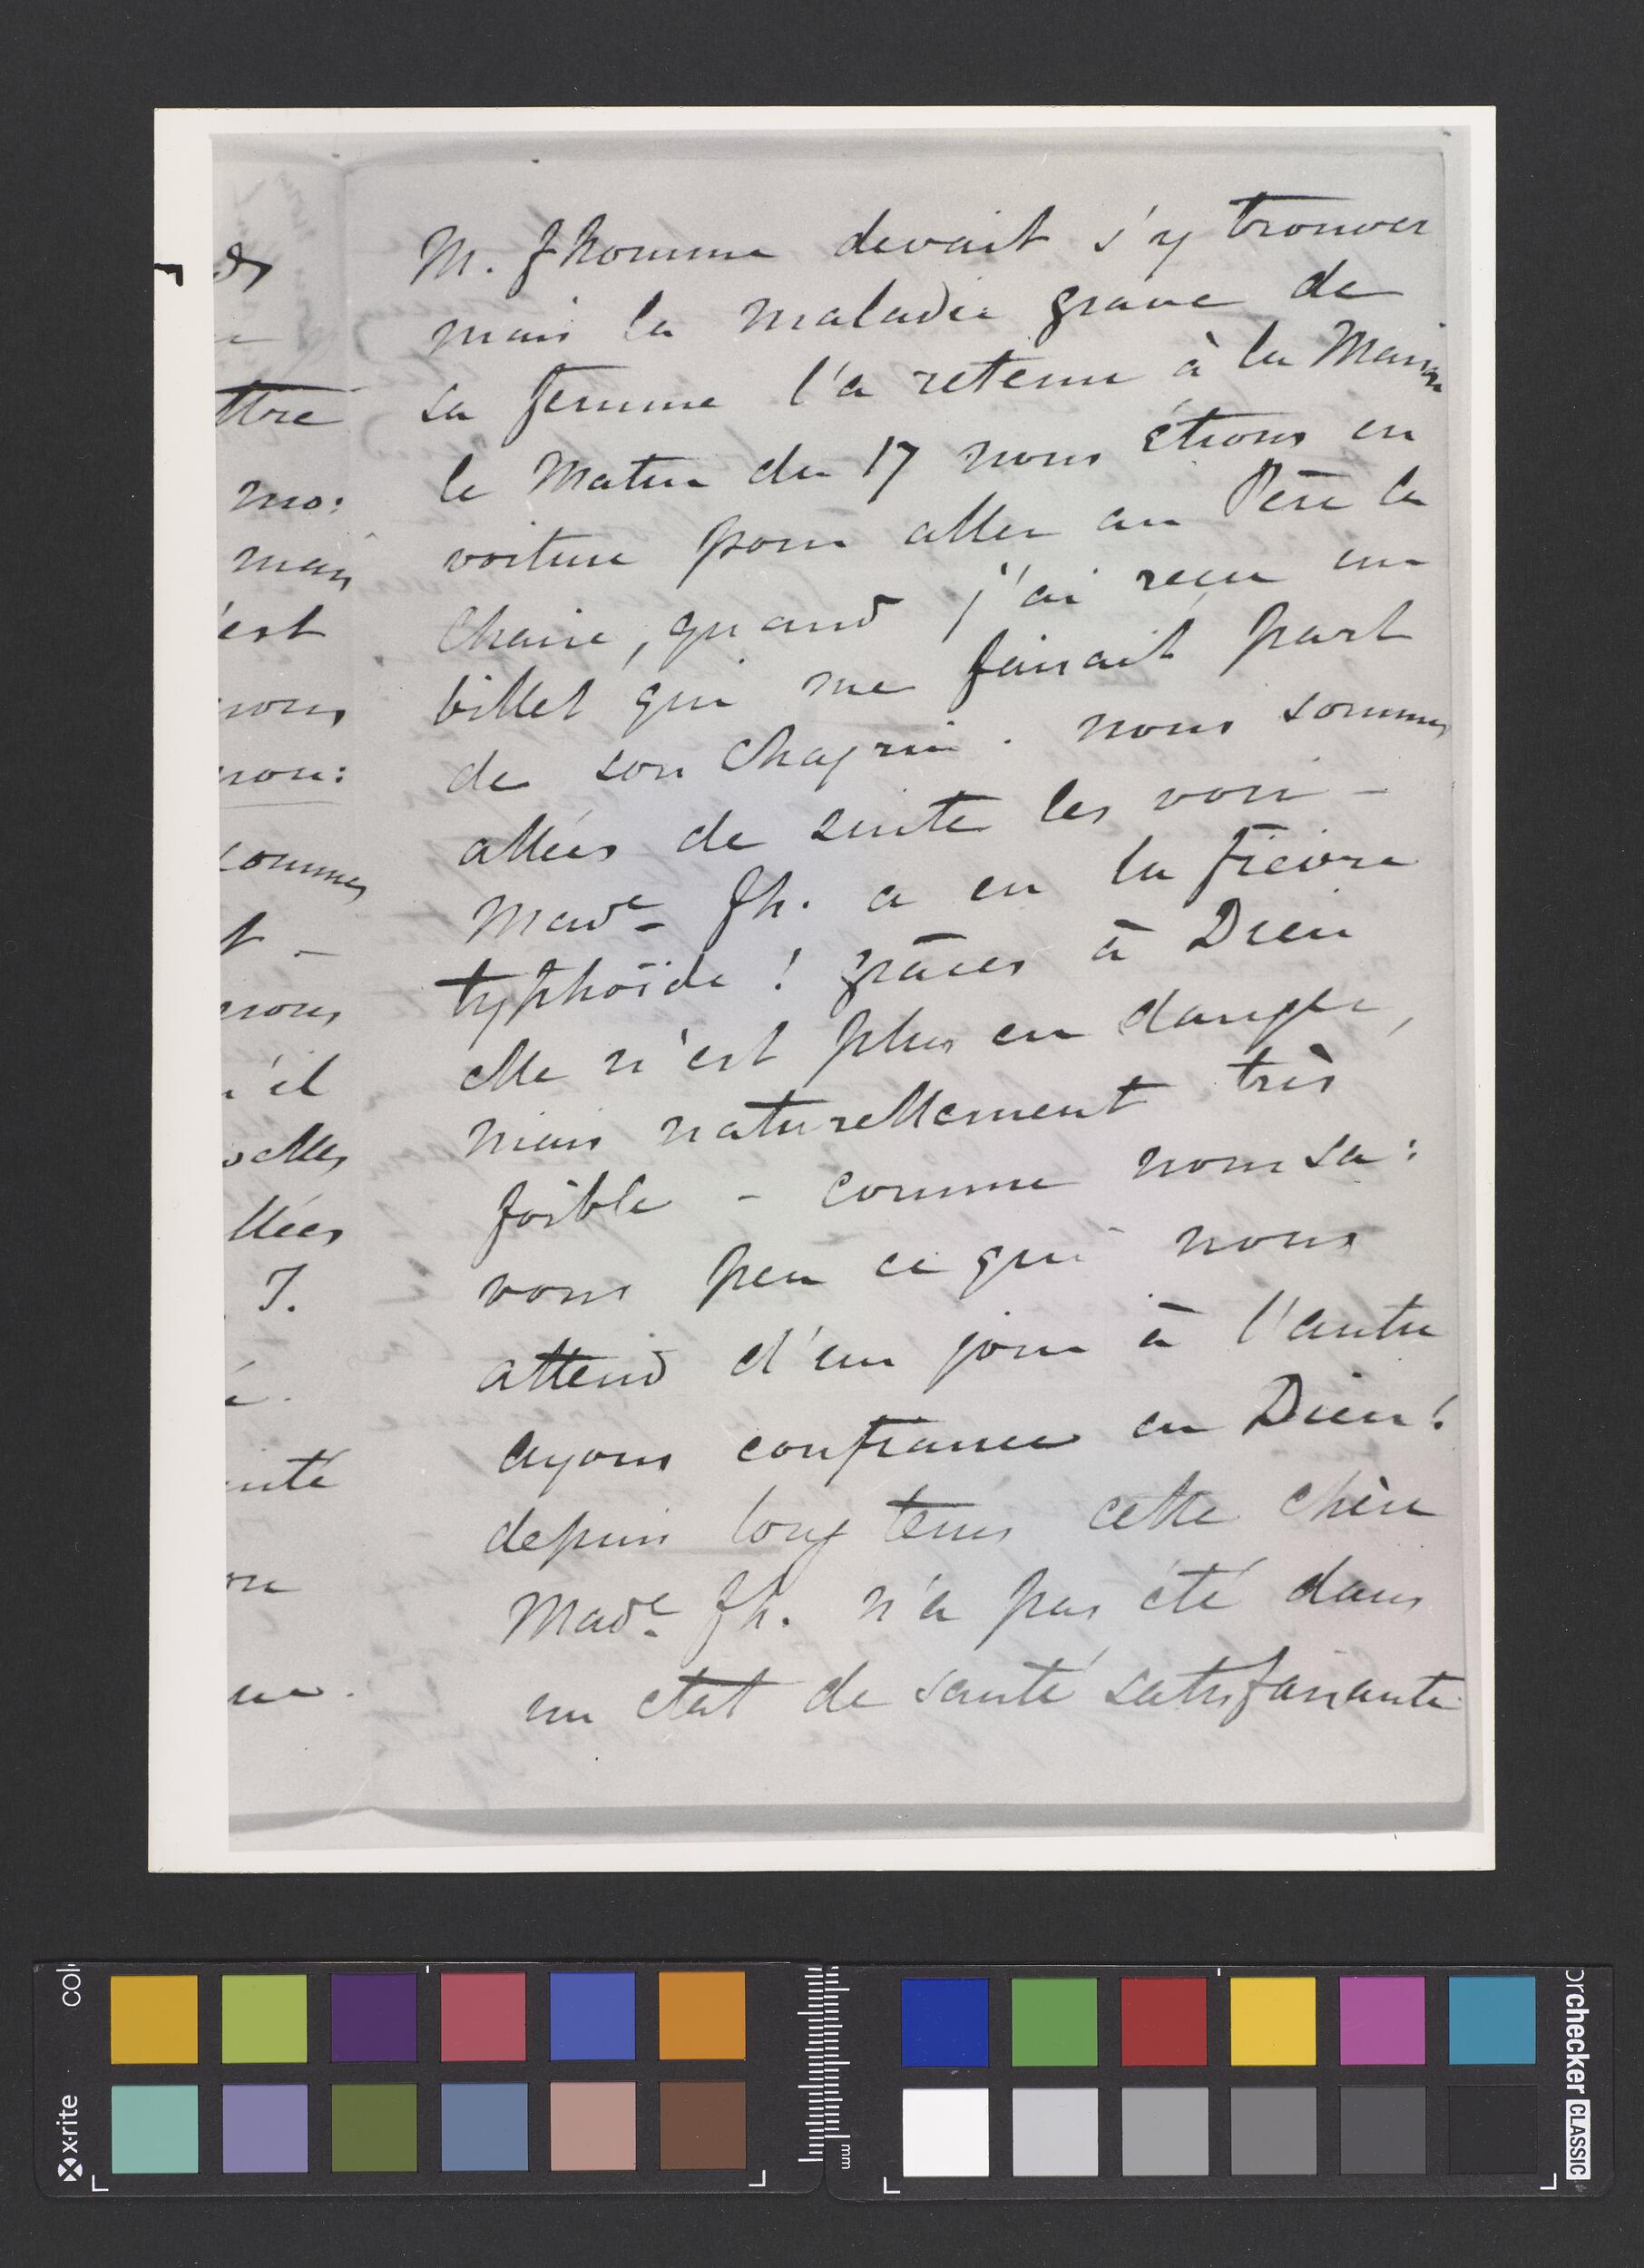 M. Jhomme devait s'y trouver
mais la maladie grave de
sa femme l'a retenu à la Maison
le Matin du 17 nous étions en
voiture pour aller au Père la
Chaise, quand j'ai reçu un
billet qui me faisait part
de son Chagrin. nous sommes
allées de suite les voir -
Made Jh. a eu la fièvre
typhoïde ! grâces à Dieu
elle n'est plus en danger,
mais naturellement très
foible - comme nous sa:
vons peu ce qui nous
attend d'un jour à l'autre
ayons confiance en Dieu!
depuis long tems cette chère
Made Jh. n'a pas été dans
un état de santé satisfaisante
ttre
mo:
mais
'est
nous
non:
sommes
t -
nous
'il
elles
llées
J.
x-rite
colorchecker CLASSIC
mm